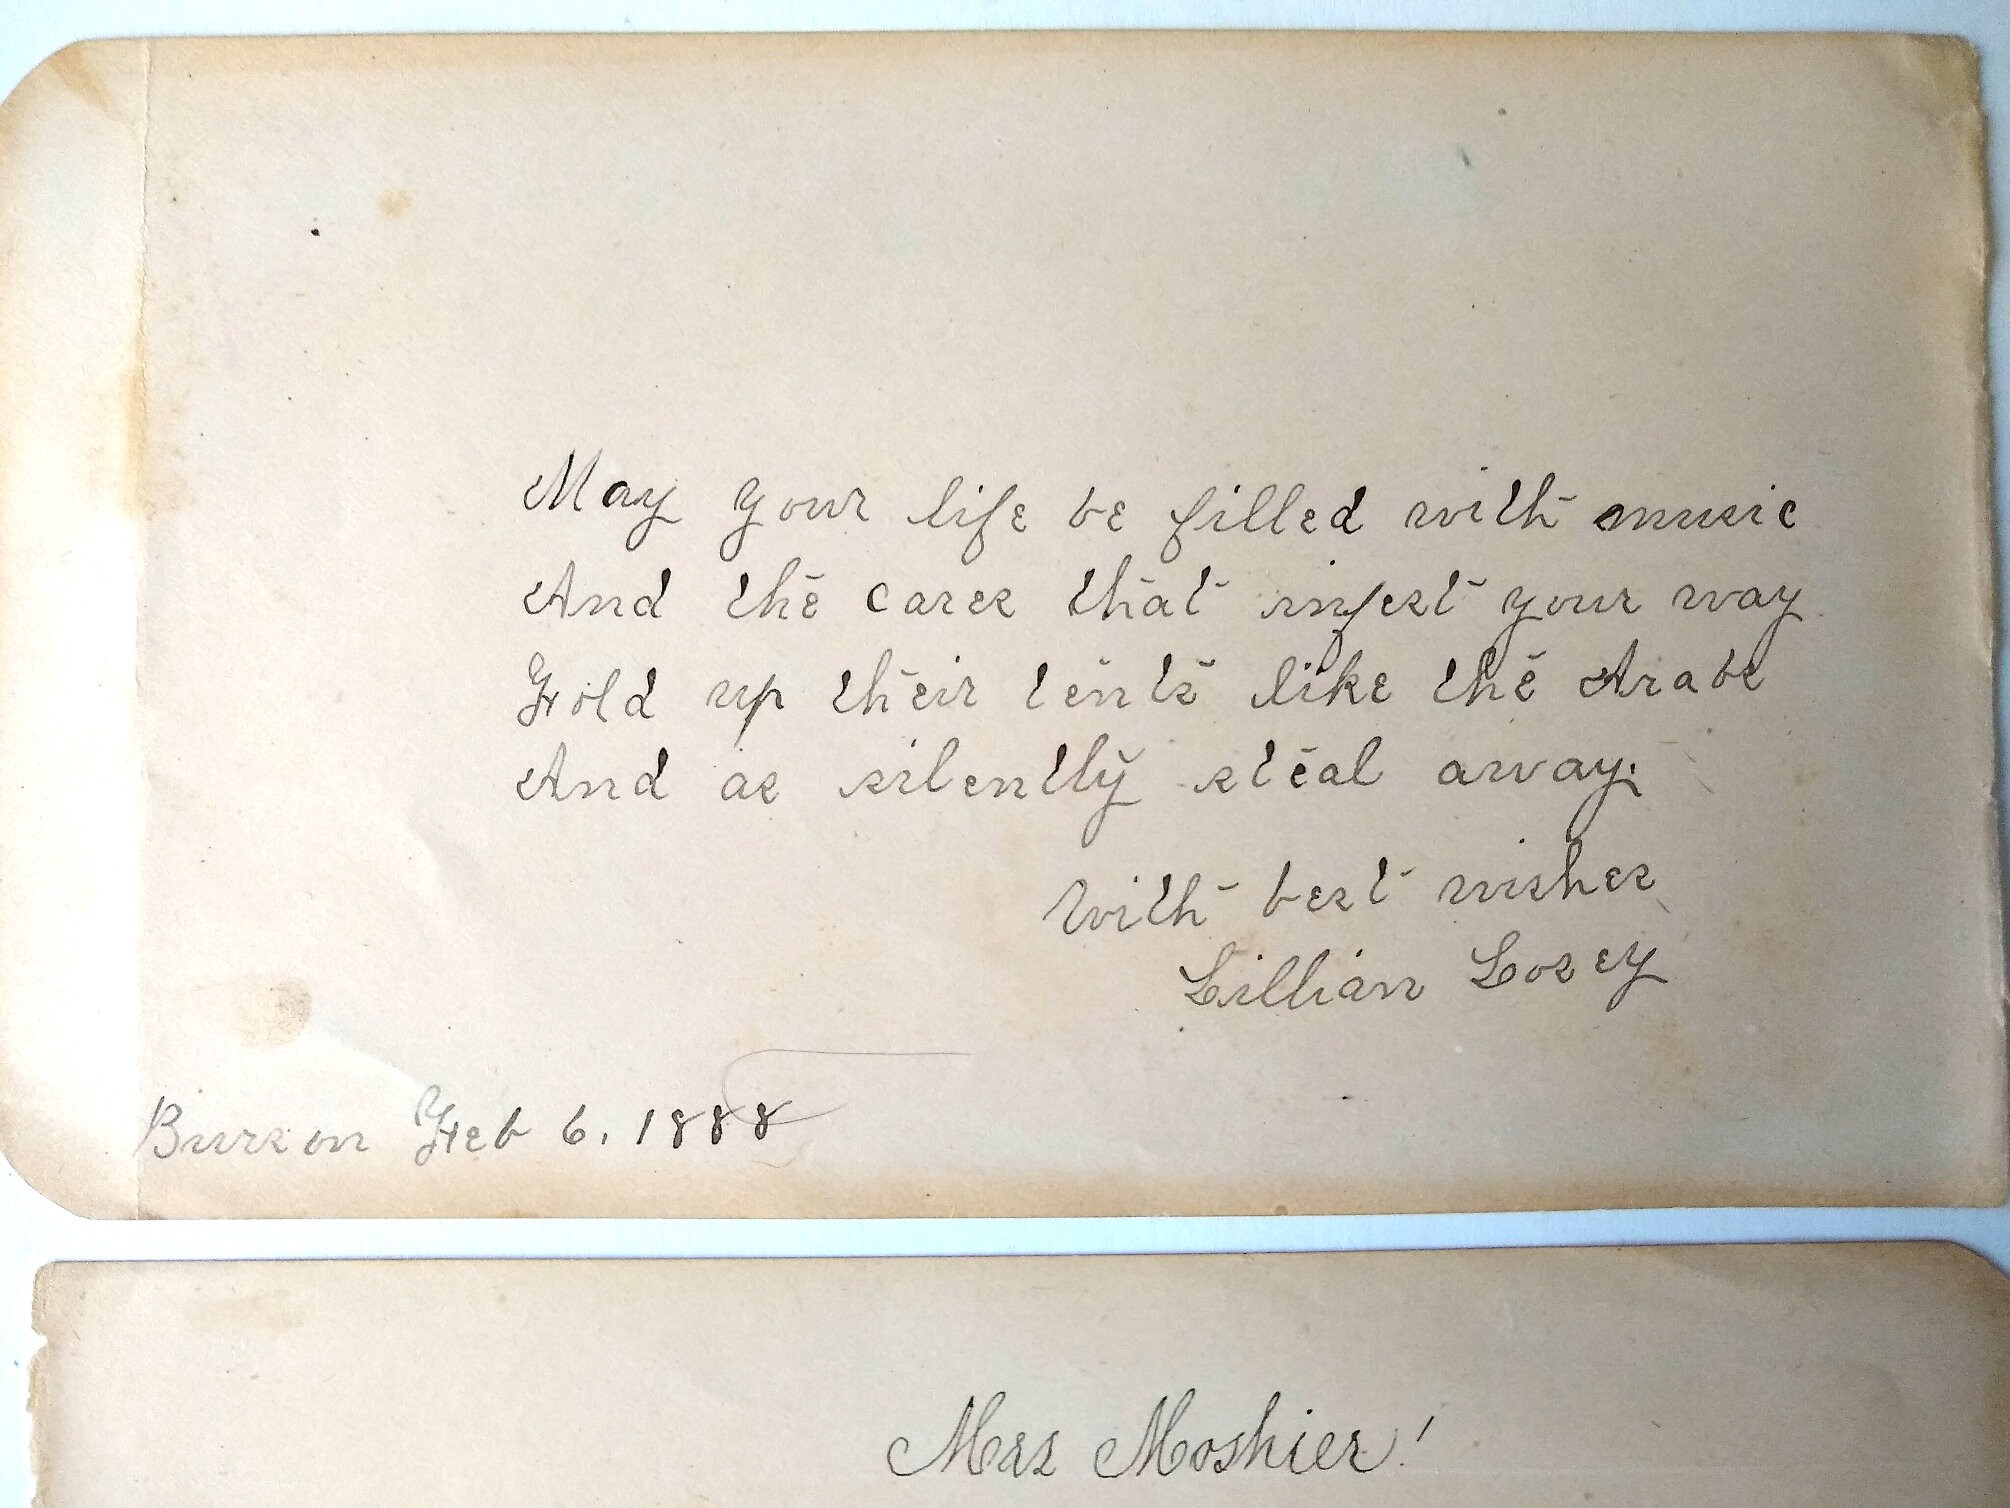 May your life be filled with music
And the cares that infest your way
Fold up their tents like the Arabs
And as silently steal away.
With best wishes
Lillian Losey
Burson Feb 6. 1888
Mrs Moshier!